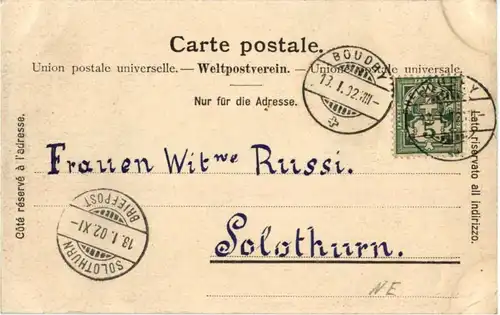 Carte postale.
Union postale universelle. — Weltpostverein. — Union postale universale.
Nur für die Adresse.
BOUDRY
13. I. 02. VIII–
5
Côté réservé à l'adresse.
Lato riservato all indirizzo.
Frauen Witwe Russi.
Solothurn.
SOLOTHURN
13. I. 02. XI–
BRIEFPOST
N-E